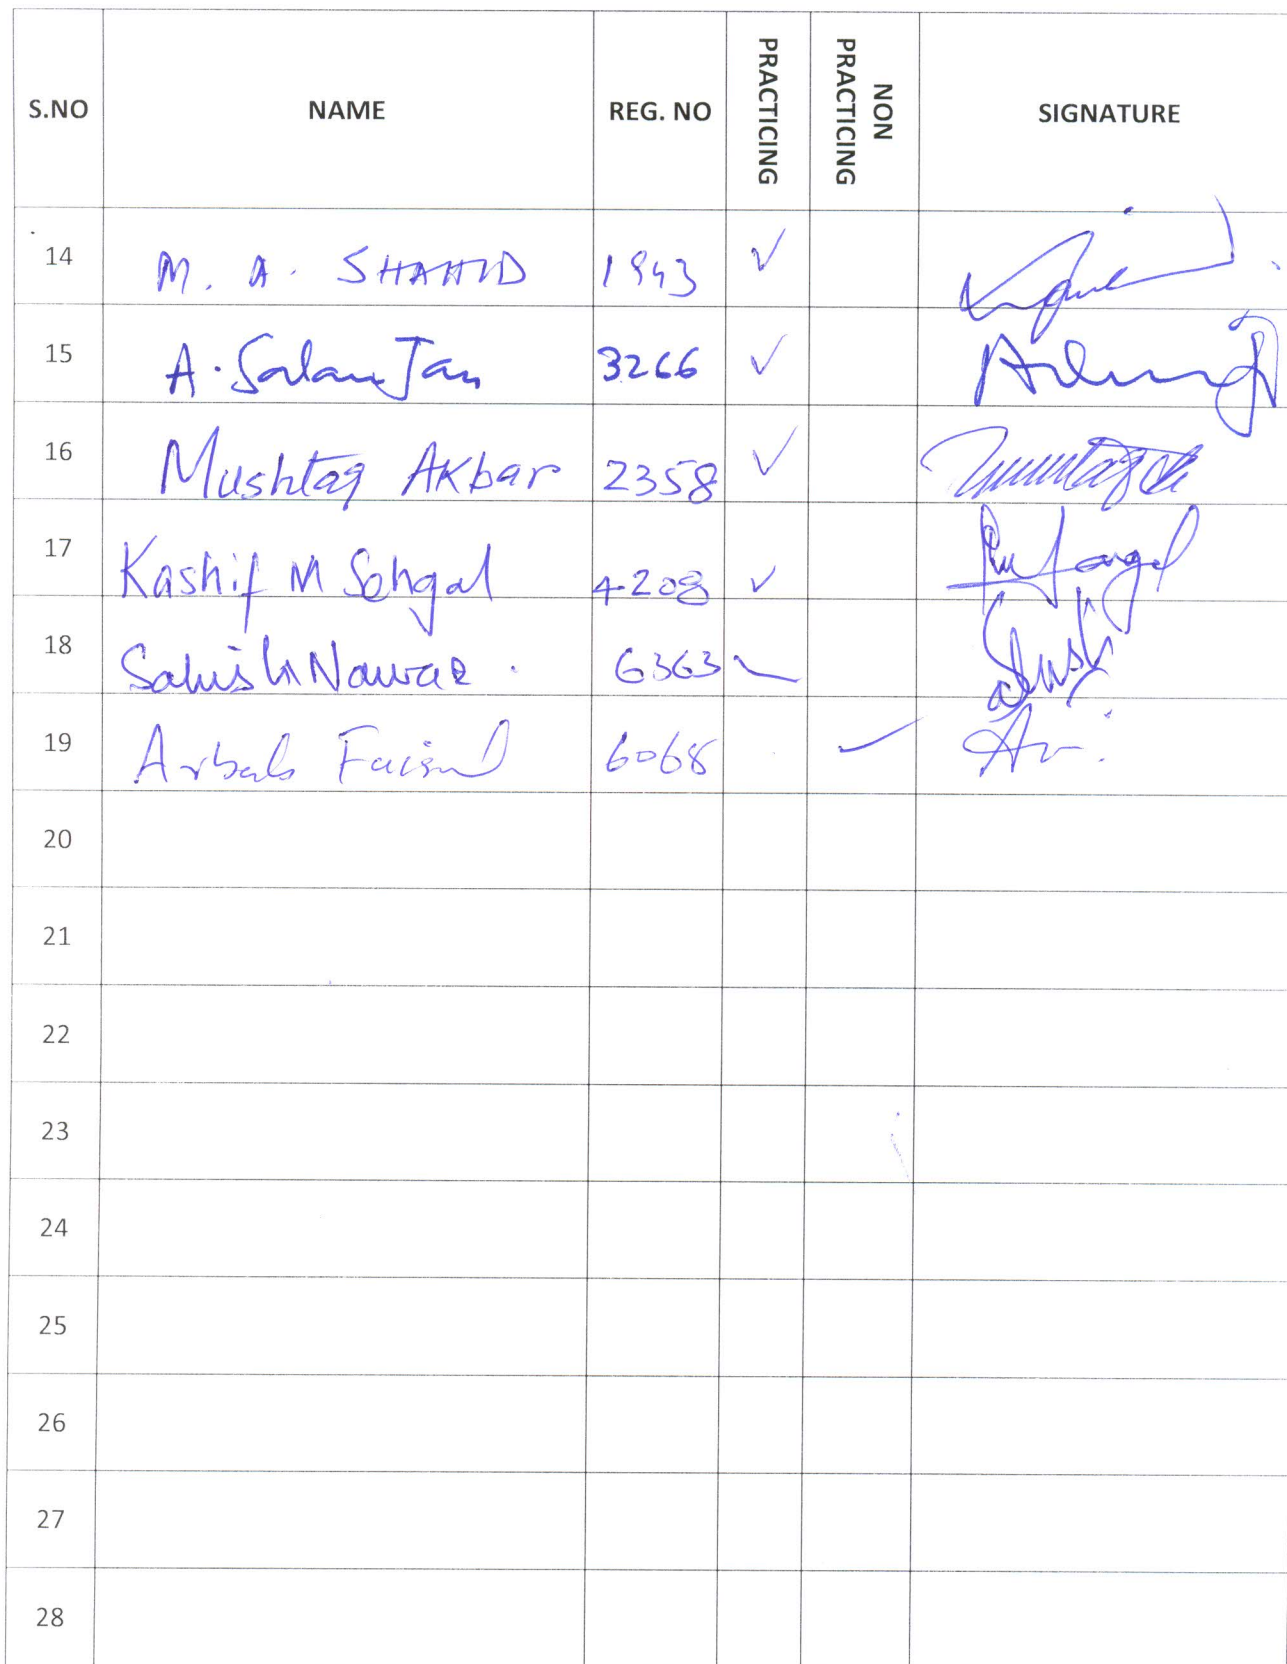 S.NO NAME REG. NO PRACTICING NON PRACTICING SIGNATURE
14 M. A. SHAHID 1943 ✓
15 A. Salam Jan 3266 ✓
16 Mushtaq AKbar 2358 ✓
17 Kashif M Sehgal 4208 ✓
18 Sahish Nawaz . 6363 ✓
19 Arbab Faisal 6068 ✓
20
21
22
23
24
25
26
27
28